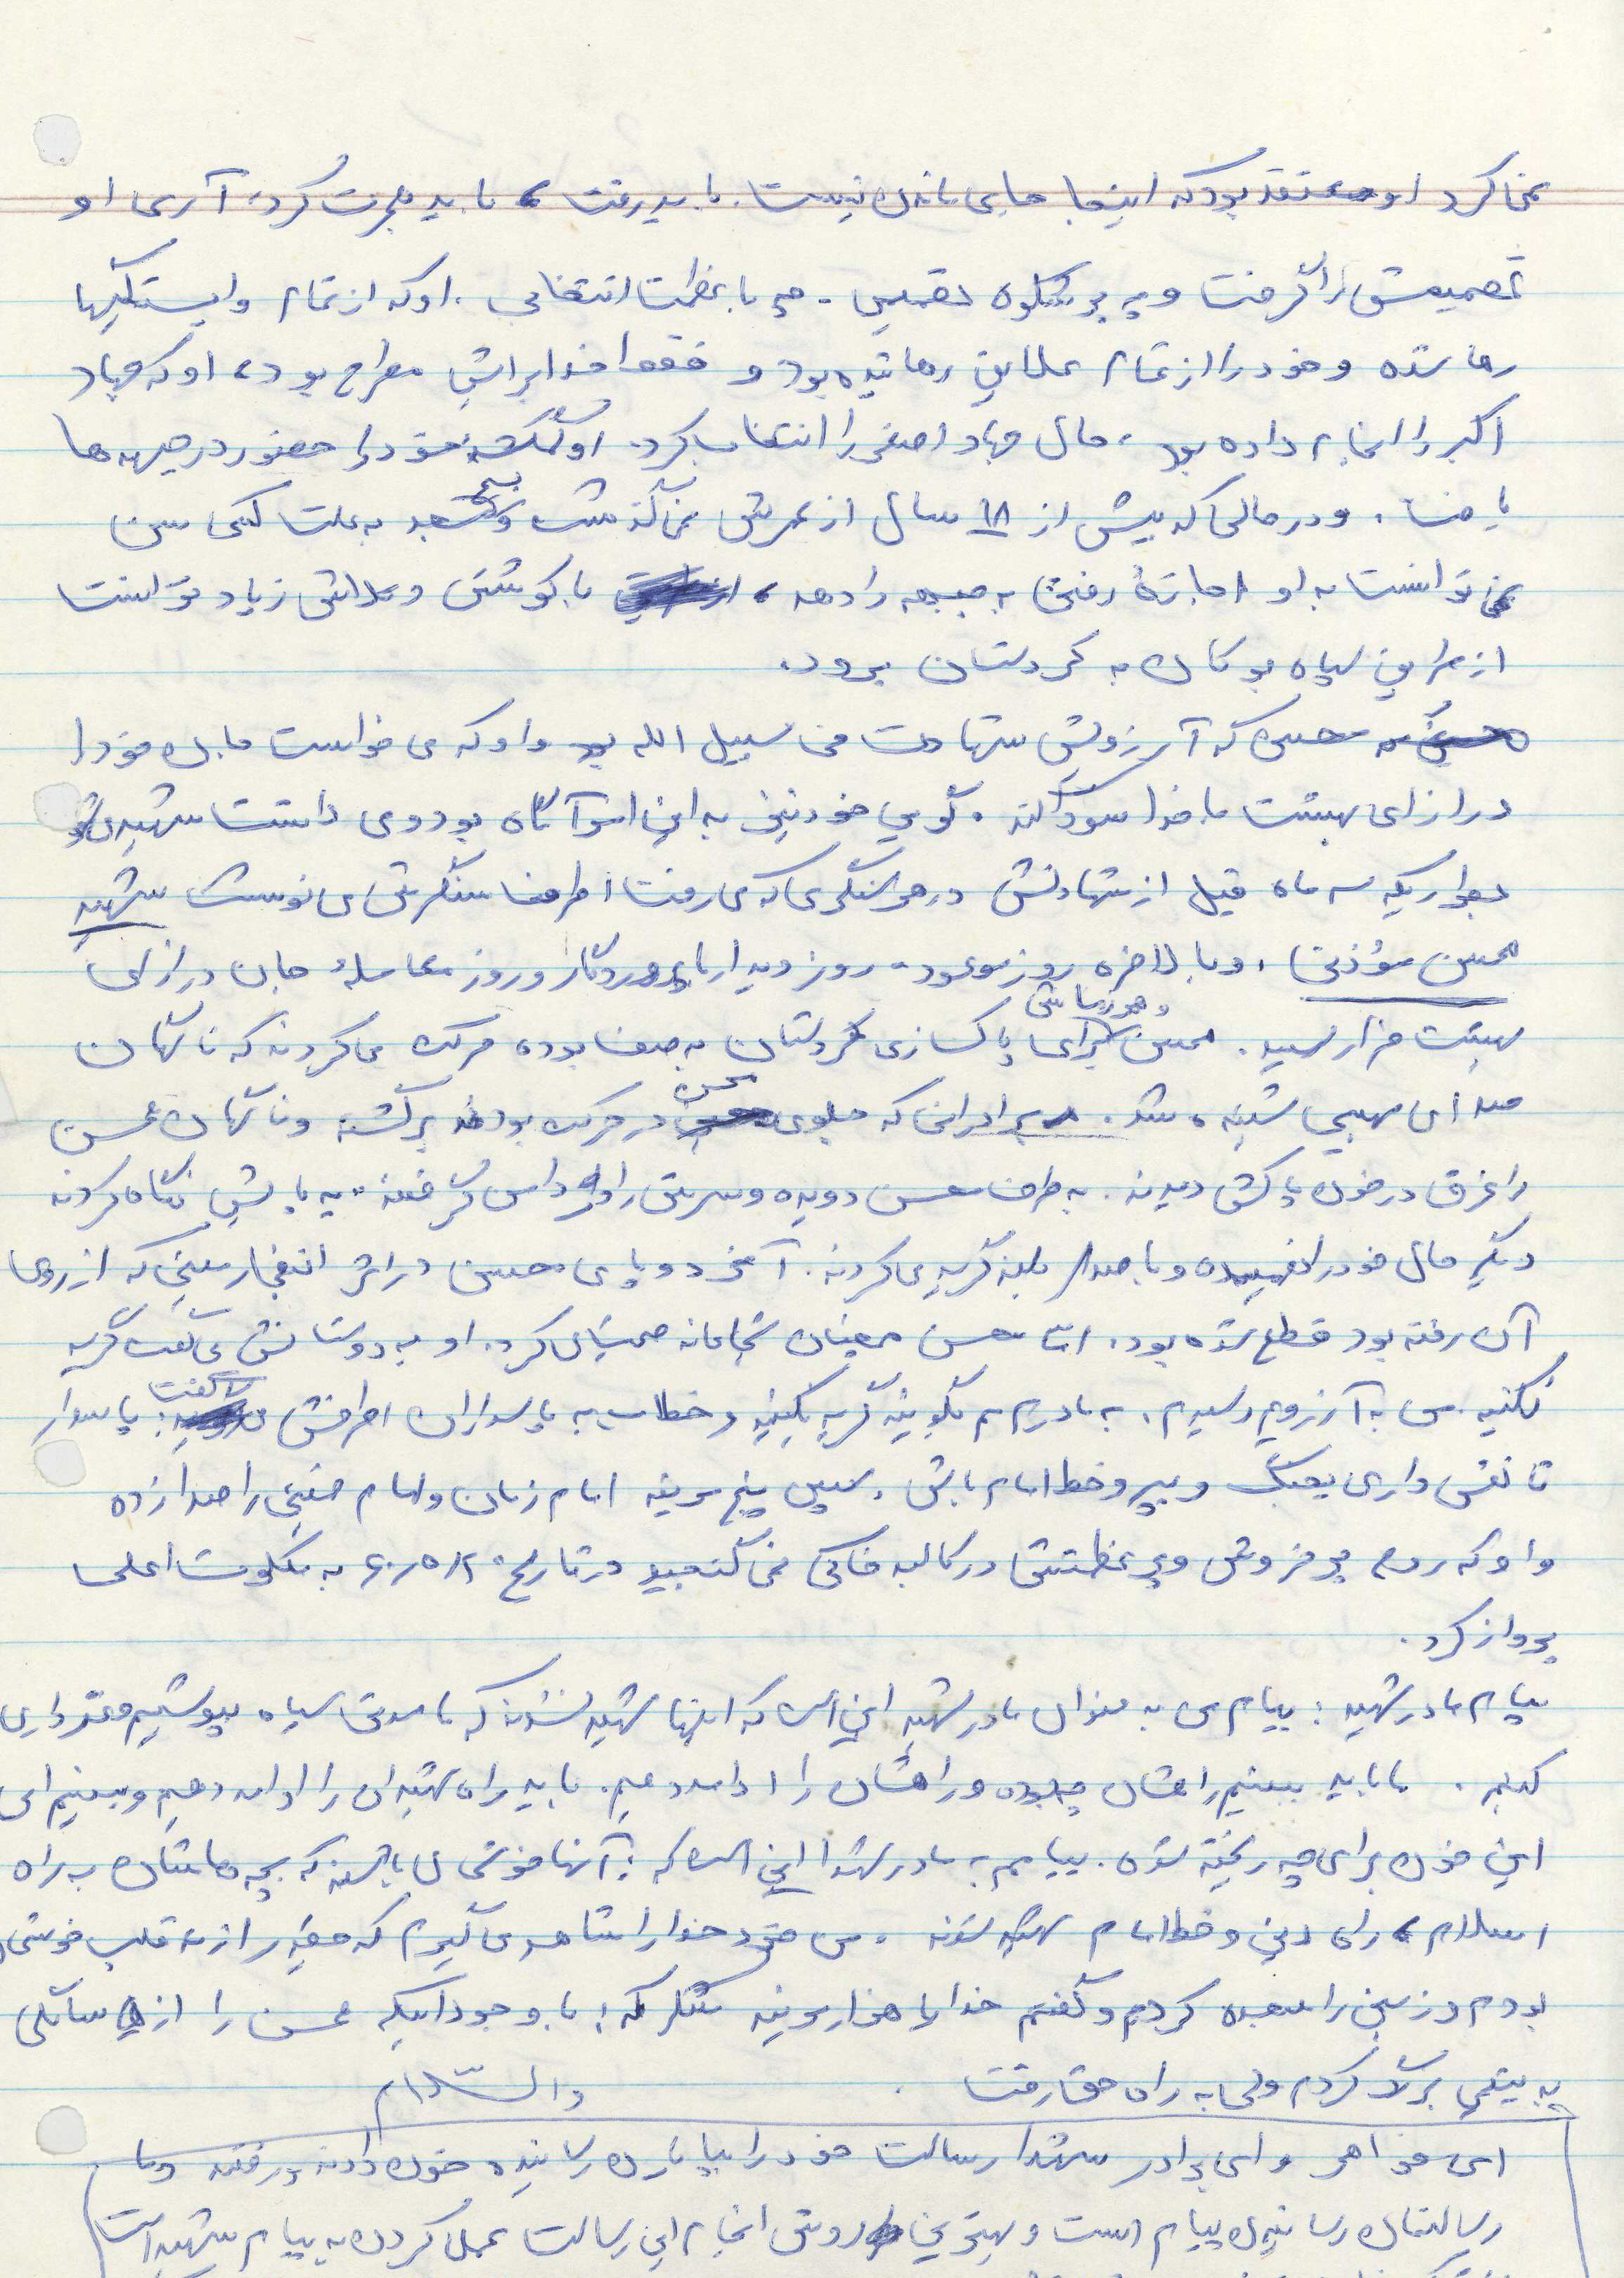 نمی‌کرد او معتقد بود که اینجا جای ماندن نیست. باید رفت، باید هجرت کرد، آری او
تصمیمش را گرفت و چه پرشکوه تصمیمی - چه با عظمت انتخابی. او که از تمام وابستگیها
رها شده و خود را از تمام علایق رهانیده بود و فقط خدا برایش مطرح بود، او که جهاد
اکبر را انجام داده بود، حال جهاد اصغر را انتخاب کرد. او خود را حضور در جبهه ها
یافت. و در حالی که بیش از ۱۸ سال از عمرش نمی گذشت و بسیج به علت کمی سن
نمی توانست به او اجازهٔ رفتن به جبهه را دهد، با کوشش و تلاش زیاد توانست
از طریق سپاه بوکان به کردستان برود.
محسن که آرزویش شهادت فی سبیل الله بود و او که می خواست جان خود را
در ازای بهشت با خدا سودا کند. گویی خود نیز به این امر آگاه بود و می دانست شهید می شود
بطوریکه سه ماه قبل از شهادتش در هر سنگری که می رفت اطراف سنگرش می نوشت شهید
محسن مؤذنی، و بالاخره روز موعود - روز دیدار با پروردگار و روز معامله جان در ازای
بهشت فرا رسید. محسن و همرزمانش برای پاکسازی کردستان به صف بوده حرکت می کردند که ناگهان
صدای مهیبی شنیده شد. برادرانی که جلوی محسن در حرکت بودند برگشته و ناگهان محسن
را غرق در خون پاکش دیدند. به طرف محسن دویده و سرش را در دامن گرفتند. به پایش نگاه کردند
دیگر حال خود را نفهمیده و با صدای بلند گریه می کردند. آخر دو پای محسن در اثر انفجار مینی که از روی
آن رفته بود قطع شده بود. اما محسن همچنان شجاعانه صحبت می کرد. او به دوستانش می گفت گریه
نکنید. من به آرزویم رسیدم. به مادرم هم بگویید گریه نکند و خطاب به پاسداران اطرافش گفت: پاسدار
تا نفس داری بجنگ و پیرو خط امام باش. سپس پنج مرتبه امام زمان و امام خمینی را صدا زده
و او که روح پر فروش و پر عظمتش در کالبد خاکی نمی گنجید در تاریخ ۶۰/۵/۲۰ به ملکوت اعلی
پرواز کرد.
پیام مادر شهید: پیام من به عنوان مادر شهید این است که اینها شهید نشدند که ما مدتی سیاه بپوشیم و عزاداری
کنیم. ما باید ببینیم راهشان چه بوده و راهشان را ادامه دهیم. باید راه شهیدان را ادامه دهیم و ببینیم
این خون برای چه ریخته شده. پیامم به مادر شهدا این است که: آنها خوشحال باشند که بچه هایشان به راه
اسلام، برای دین و خط امام شهید شدند. من خود خدا را شاهد می گیرم که چقدر از ته قلب خوشحال
بودم و زمین را سجده کردم و گفتم خدایا هزار مرتبه شکر که: با وجود اینکه محسن را از سالگی
به یتیمی بزرگ کردم ولی به راه حق رفت. والسلام
ای خواهر و ای برادر شهدا رسالت خود را بپایان رسانیده خون دادند و رفتند و ما
رسالتمان رسانیدن پیام است و بهترین روش انجام این رسالت عمل کردن به پیام شهید است